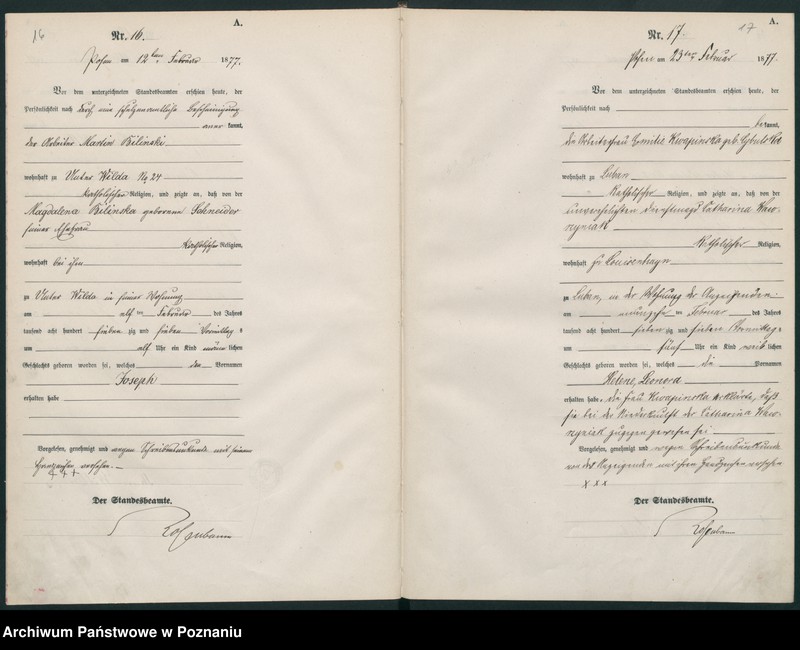 16
A.
Nr. 16.
Posen am 12ten Februar 1877.
Vor dem unterzeichneten Standesbeamten erschien heute, der
Persönlichkeit nach durch eine schutzamtliche Bescheinigung
aner kannt,
der Arbeiter Martin Bilinski
wohnhaft zu Unter Wilda No 24
katholischer Religion, und zeigte an, daß von der
Magdalena Bilinska geborene Schneider
seiner Ehefrau
katholischer Religion,
wohnhaft bei ihm
zu Unter Wilda in seiner Wohnung
am elf ten Februar des Jahres
tausend acht hundert sieben zig und sieben Vormittag s
um elf Uhr ein Kind männ lichen
Geschlechts geboren worden sei, welches den Vornamen
Joseph
erhalten habe
Vorgelesen, genehmigt und wegen Schreibensunkunde mit seinem
Handzeichen versehen.
+++
Der Standesbeamte.
17
A.
Nr. 17.
Posen am 23ten Februar 1877.
Vor dem unterzeichneten Standesbeamten erschien heute, der
Persönlichkeit nach
be kannt,
die Arbeiterfrau Emilie Kwapinska geb. Cybulska
wohnhaft zu Luban
katholischer Religion, und zeigte an, daß von der
unverehelichten Dienstmagd Catharina Waw-
rzyniak
katholischer Religion,
wohnhaft zu Louisenhayn
zu Luban, in der Wohnung der Anzeigenden
am neunzehn ten Februar des Jahres
tausend acht hundert sieben zig und sieben Vormittag s
um fünf Uhr ein Kind weib lichen
Geschlechts geboren worden sei, welches die Vornamen
Helene, Leonora
erhalten habe. Die Frau Kwapinska erklärte, daß
sie bei der Niederkunft der Catharina Waw-
rzyniak zugegen gewesen sei
Vorgelesen, genehmigt und wegen Schreibensunkunde
von der Anzeigenden mit ihrem Handzeichen versehen
x x x
Der Standesbeamte.
Archiwum Państwowe w Poznaniu